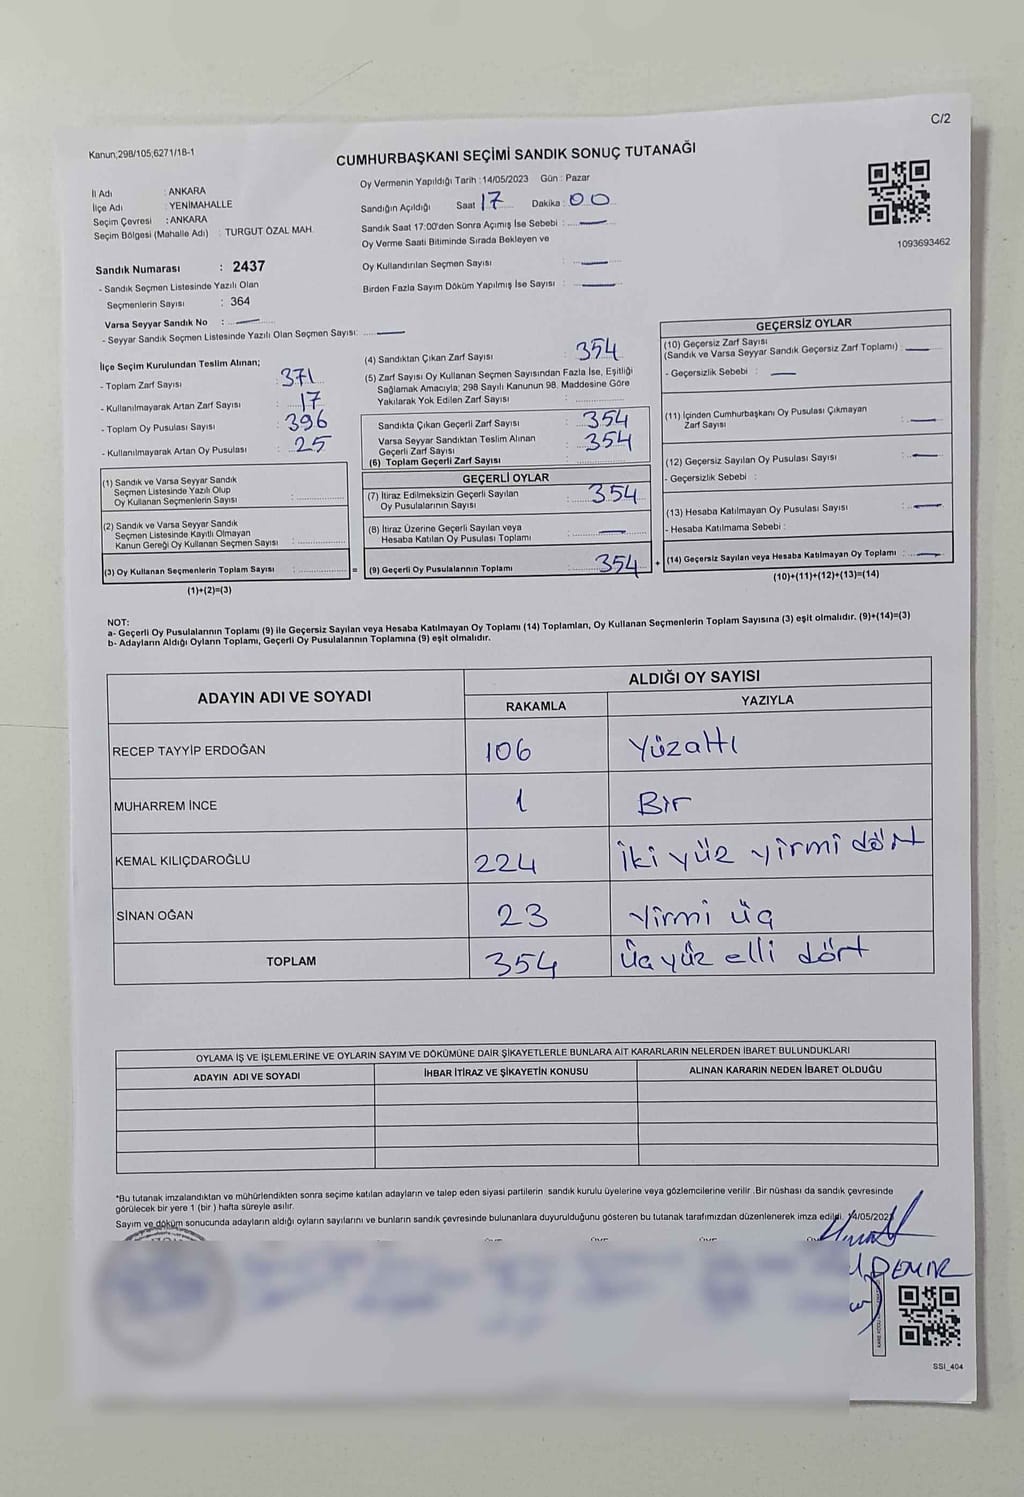 C/2
Kanun;298/105;6271/18-1
CUMHURBAŞKANI SEÇİMİ SANDIK SONUÇ TUTANAĞI
İl Adı : ANKARA
İlçe Adı : YENİMAHALLE
Seçim Çevresi : ANKARA
Seçim Bölgesi (Mahalle Adı) : TURGUT ÖZAL MAH.
Oy Vermenin Yapıldığı Tarih : 14/05/2023 Gün : Pazar
Sandığın Açıldığı Saat 17 Dakika : 00
Sandık Saat 17:00'den Sonra Açımış İse Sebebi : —
Oy Verme Saati Bitiminde Sırada Bekleyen ve
Oy Kullandırılan Seçmen Sayısı : —
Birden Fazla Sayım Döküm Yapılmış İse Sayısı : —
1093693462
Sandık Numarası : 2437
- Sandık Seçmen Listesinde Yazılı Olan
Seçmenlerin Sayısı : 364
Varsa Seyyar Sandık No : —
- Seyyar Sandık Seçmen Listesinde Yazılı Olan Seçmen Sayısı: —
İlçe Seçim Kurulundan Teslim Alınan;
- Toplam Zarf Sayısı : 371
- Kullanılmayarak Artan Zarf Sayısı : 17
- Toplam Oy Pusulası Sayısı : 396
- Kullanılmayarak Artan Oy Pusulası : 25
(1) Sandık ve Varsa Seyyar Sandık
Seçmen Listesinde Yazılı Olup
Oy Kullanan Seçmenlerin Sayısı :
(2) Sandık ve Varsa Seyyar Sandık
Seçmen Listesinde Kayıtlı Olmayan
Kanun Gereği Oy Kullanan Seçmen Sayısı :
(3) Oy Kullanan Seçmenlerin Toplam Sayısı :
(1)+(2)=(3)
=
(4) Sandıktan Çıkan Zarf Sayısı : 354
(5) Zarf Sayısı Oy Kullanan Seçmen Sayısından Fazla İse, Eşitliği
Sağlamak Amacıyla; 298 Sayılı Kanunun 98. Maddesine Göre
Yakılarak Yok Edilen Zarf Sayısı :
Sandıkta Çıkan Geçerli Zarf Sayısı : 354
Varsa Seyyar Sandıktan Teslim Alınan
Geçerli Zarf Sayısı : 354
(6) Toplam Geçerli Zarf Sayısı :
GEÇERLİ OYLAR
(7) İtiraz Edilmeksizin Geçerli Sayılan
Oy Pusulalarının Sayısı : 354
(8) İtiraz Üzerine Geçerli Sayılan veya
Hesaba Katılan Oy Pusulası Toplamı : —
(9) Geçerli Oy Pusulalarının Toplamı : 354
+
GEÇERSİZ OYLAR
(10) Geçersiz Zarf Sayısı
(Sandık ve Varsa Seyyar Sandık Geçersiz Zarf Toplamı) : —
- Geçersizlik Sebebi : —
(11) İçinden Cumhurbaşkanı Oy Pusulası Çıkmayan
Zarf Sayısı : —
(12) Geçersiz Sayılan Oy Pusulası Sayısı : —
- Geçersizlik Sebebi :
(13) Hesaba Katılmayan Oy Pusulası Sayısı : —
- Hesaba Katılmama Sebebi :
(14) Geçersiz Sayılan veya Hesaba Katılmayan Oy Toplamı : —
(10)+(11)+(12)+(13)=(14)
NOT:
a- Geçerli Oy Pusulalarının Toplamı (9) ile Geçersiz Sayılan veya Hesaba Katılmayan Oy Toplamı (14) Toplamları, Oy Kullanan Seçmenlerin Toplam Sayısına (3) eşit olmalıdır. (9)+(14)=(3)
b- Adayların Aldığı Oyların Toplamı, Geçerli Oy Pusulalarının Toplamına (9) eşit olmalıdır.
ADAYIN ADI VE SOYADI ALDIĞI OY SAYISI
RAKAMLA YAZIYLA
RECEP TAYYİP ERDOĞAN 106 Yüzaltı
MUHARREM İNCE 1 Bir
KEMAL KILIÇDAROĞLU 224 İki yüz yirmi dört
SİNAN OĞAN 23 Yirmi üç
TOPLAM 354 Üçyüz elli dört
OYLAMA İŞ VE İŞLEMLERİNE VE OYLARIN SAYIM VE DÖKÜMÜNE DAİR ŞİKAYETLERLE BUNLARA AİT KARARLARIN NELERDEN İBARET BULUNDUKLARI
ADAYIN ADI VE SOYADI İHBAR İTİRAZ VE ŞİKAYETİN KONUSU ALINAN KARARIN NEDEN İBARET OLDUĞU
*Bu tutanak imzalandıktan ve mühürlendikten sonra seçime katılan adayların ve talep eden siyasi partilerin sandık kurulu üyelerine veya gözlemcilerine verilir .Bir nüshası da sandık çevresinde
görülecek bir yere 1 (bir ) hafta süreyle asılır.
Sayım ve döküm sonucunda adayların aldığı oyların sayılarını ve bunların sandık çevresinde bulunanlara duyurulduğunu gösteren bu tutanak tarafımızdan düzenlenerek imza edildi. 14/05/2023
DEMİR
SSI_404